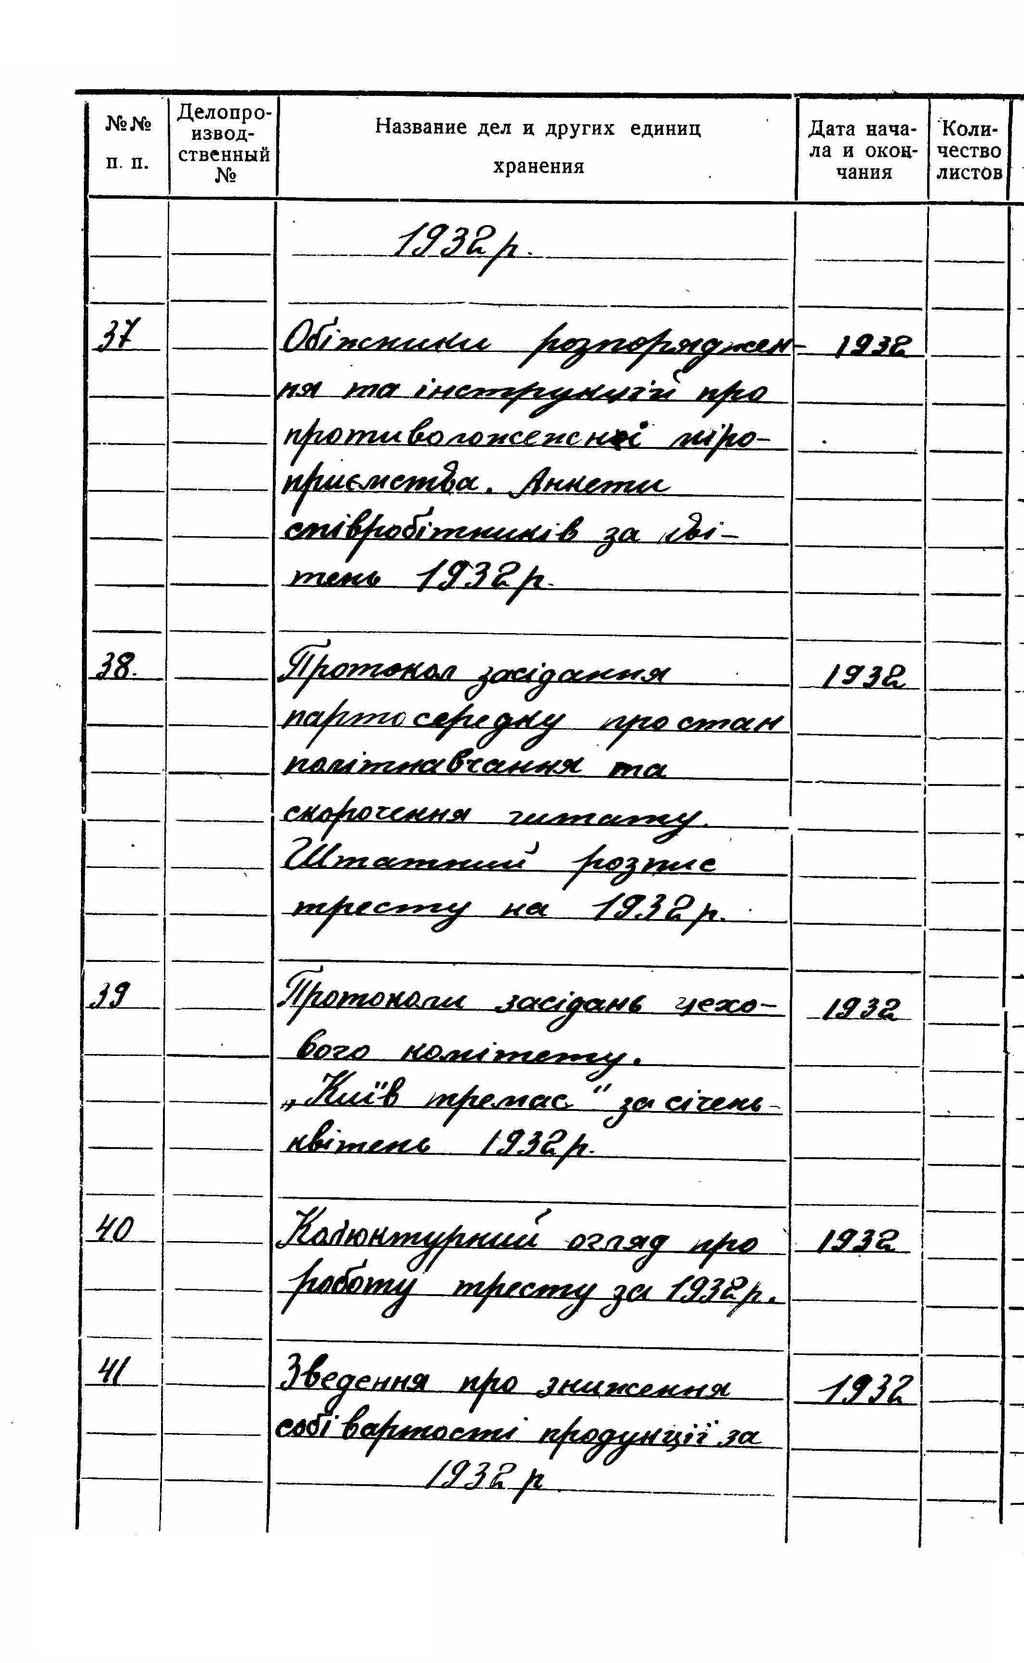 №№ п. п. Делопро-извод-ственный № Название дел и других единиц хранения Дата нача-ла и окон-чания Коли-чество листов
1932 р.
37 Обіжники розпоряджен- 1932
ня та інструкцій про
противопожежної міро-
приємства. Анкети
співробітників за кві-
тень 1932 р.
38. Протокол засідання 1932
партосередку про стан
політнавчання та
скорочення штату.
Штатний розпис
тресту на 1932 р.
39 Протоколи засідань цехо- 1932
вого комітету.
„Київ тремас" за січень-
квітень 1932 р.
40 Кон'юнктурний огляд про 1932
роботу тресту за 1932 р.
41 Зведення про зниження 1932
собівартості продукції за
1932 р.